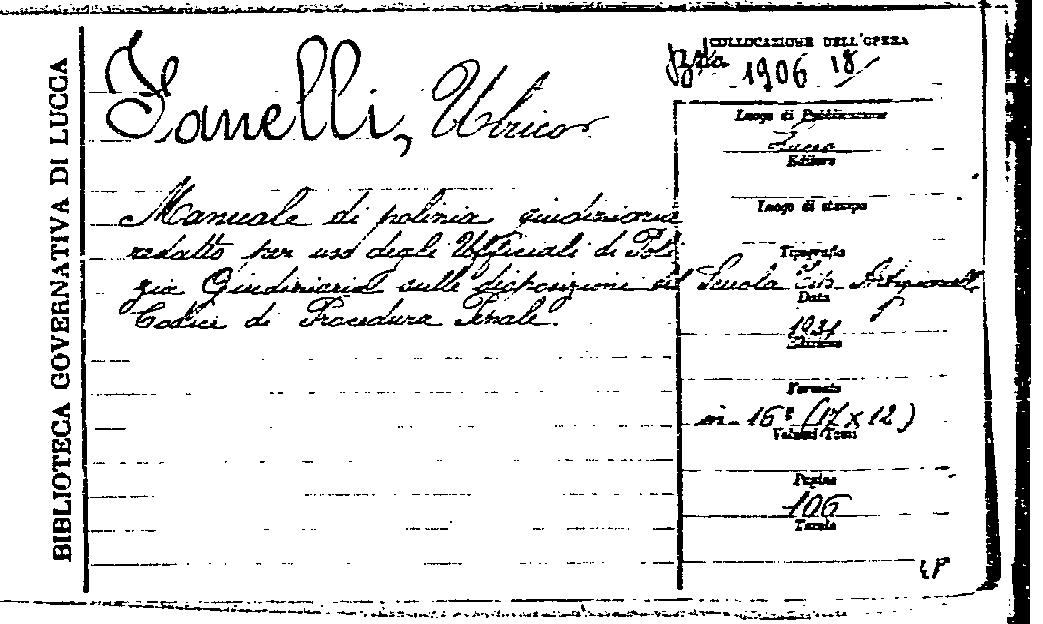 BIBLIOTECA GOVERNATIVA DI LUCCA
Fanelli, Ulrico
Manuale di polizia giudiziaria
redatto per uso degli Ufficiali di Poli
zia Giudiziaria sulle disposizioni del
Codice di Procedura Penale.
COLLOCAZIONE DELL'OPERA
Bta 1906 18/
Luogo di Pubblicazione
Lucca
Editore
Luogo di stampa
Tipografia
Scuola Tip. Artigianelli
Data
1931
Edizione
Formato
in-16º (17 x 12)
Volumi-Tomi
Pagine
106
Tavole